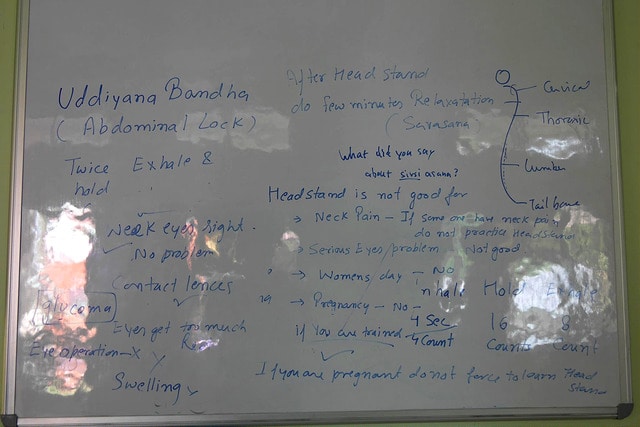 Uddiyana Bandha
(Abdominal Lock)
Twice Exhale &
hold
Neck eyes sight.
No problem
Contact lences
glycoma
Eyes get too much
Eye operation - X
Swelling
After Head Stand
do few minutes Relaxatation
(Savasana)
What did you say
about sirsi asana?
Headstand is not good for
→ Neck Pain - If some one have neck pain
do not practice headstand
→ Serious Eyes/problem Not good
→ Womens day - No
→ Pregnancy - No -
if you are trained
nhale Hold Exhale
4 Sec 16 8
4 Count Counts Count
If you are pregnant do not force to learn Head
Stand
Cervical
Thoracic
Lumber
Tail bone